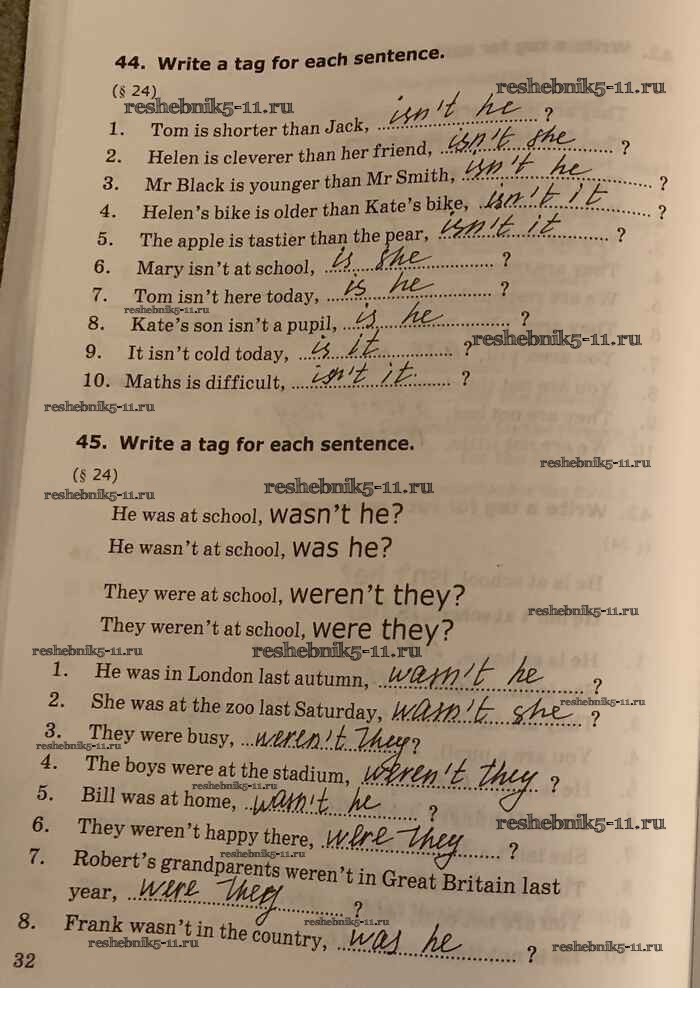 44. Write a tag for each sentence.
(§ 24)
reshebnik5-11.ru
reshebnik5-11.ru
1. Tom is shorter than Jack, isn't he ?
2. Helen is cleverer than her friend, isn't she ?
3. Mr Black is younger than Mr Smith, isn't he ?
4. Helen's bike is older than Kate's bike, isn't it ?
5. The apple is tastier than the pear, isn't it ?
6. Mary isn't at school, is she ?
7. Tom isn't here today, is he ?
reshebnik5-11.ru
8. Kate's son isn't a pupil, is he ?
reshebnik5-11.ru
9. It isn't cold today, is it ?
10. Maths is difficult, isn't it ?
reshebnik5-11.ru
45. Write a tag for each sentence.
reshebnik5-11.ru
(§ 24)
reshebnik5-11.ru
reshebnik5-11.ru
He was at school, wasn't he?
He wasn't at school, was he?
They were at school, weren't they?
reshebnik5-11.ru
They weren't at school, were they?
reshebnik5-11.ru
reshebnik5-11.ru
1. He was in London last autumn, wasn't he ?
2. She was at the zoo last Saturday, wasn't she ?
reshebnik5-11.ru
3. They were busy, weren't they ?
reshebnik5-11.ru
4. The boys were at the stadium, weren't they ?
reshebnik5-11.ru
5. Bill was at home, wasn't he ?
reshebnik5-11.ru
6. They weren't happy there, were they ?
reshebnik5-11.ru
7. Robert's grandparents weren't in Great Britain last
year, were they ?
reshebnik5-11.ru
8. Frank wasn't in the country, was he ?
reshebnik5-11.ru
reshebnik5-11.ru
32